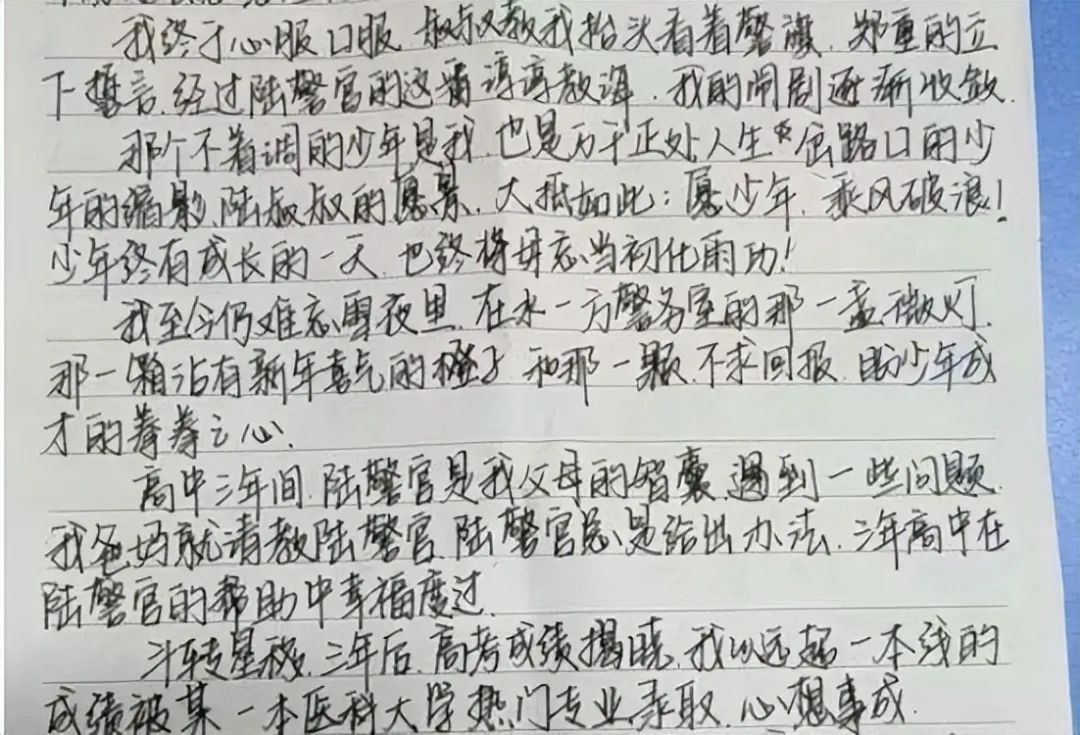 我终于心服口服.叔叔教我抬头看着警旗.郑重的立
下誓言.经过陆警官的这番谆谆教诲.我的闹剧逐渐收敛.
那个不着调的少年是我.也是万千正处人生 岔路口的少
年的缩影.陆叔叔的愿景.大抵如此:愿少年.乘风破浪!
少年终有成长的一天.也终将毋忘当初化雨功!
我至今仍难忘雪夜里.在水一方警务室的那一盏微灯.
那一箱沾有新年喜气的橙子.和那一颗.不求回报.助少年成
才的拳拳之心.
高中三年间.陆警官是我父母的智囊.遇到一些问题.
我爸妈就请教陆警官.陆警官总是给出办法.三年高中在
陆警官的帮助中幸福度过.
斗转星移.三年后.高考成绩揭晓.我以远超一本线的
成绩被某一本医科大学热门专业录取.心想事成.